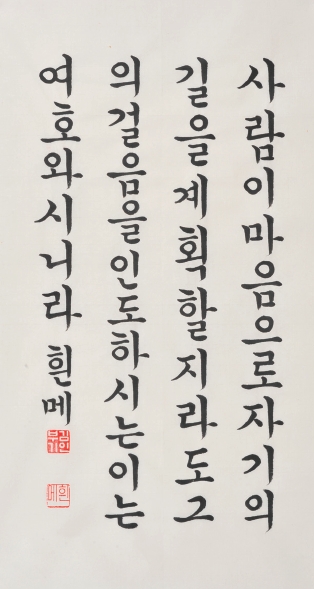 사람이마음으로자기의
길을계획할지라도그
의걸음을인도하시는이는
여호와시니라 흰메
흰메